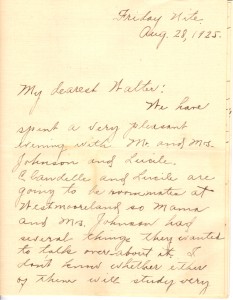 Friday Nite.
Aug. 28, 1925.
My dearest Walter:
We have
spent a very pleasant
evening with Mr. and Mrs.
Johnson and Lucile.
and Lucile are
going to be roommates at
Westmoreland so Mama
and Mrs. Johnson had
several things they wanted
to talk over about it. I
don't know whether either
of them will study very